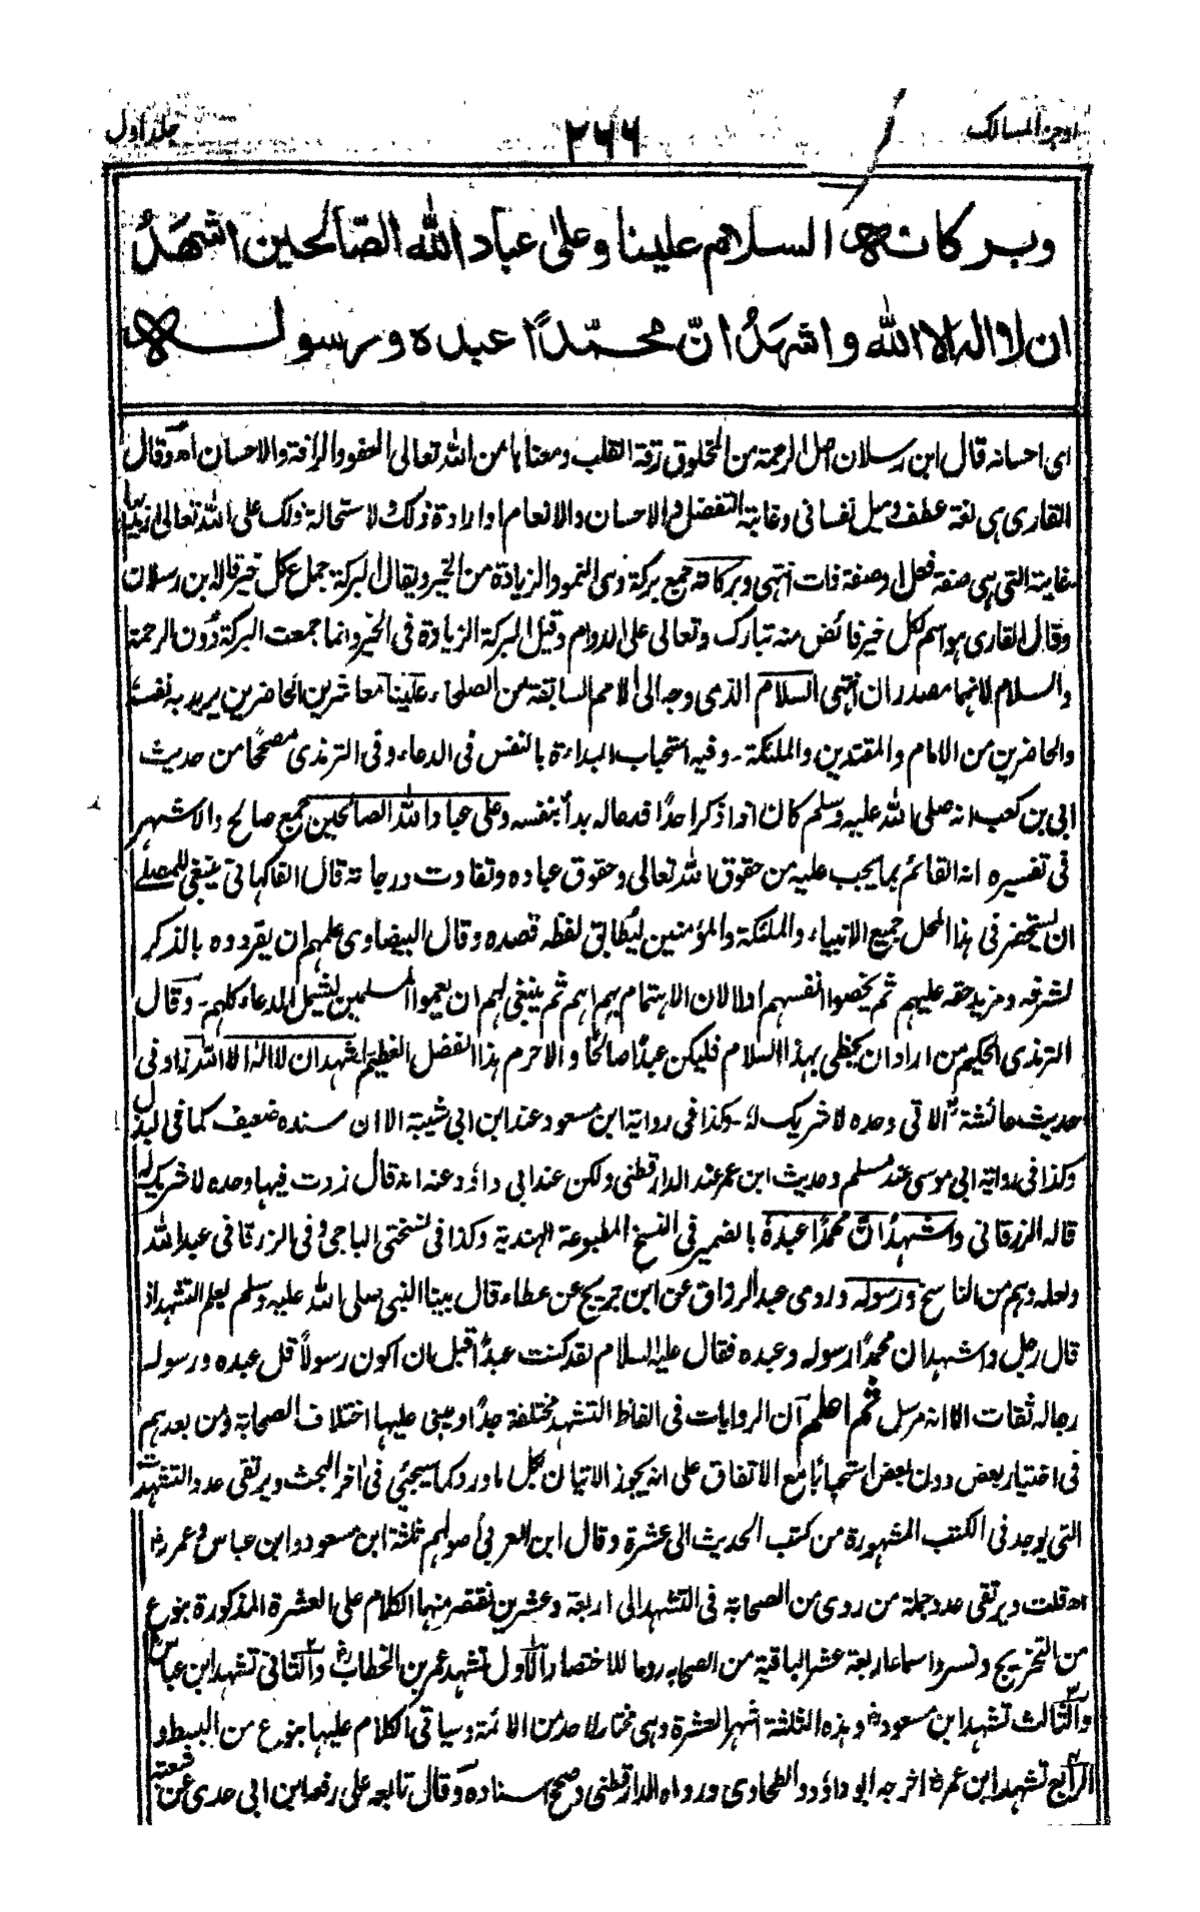 اوجز المسالك
٢٦٦
جلد اول
وبركاته السلام علينا وعلى عباد الله الصّالحين اشهدُ
ان لا اله الا الله واشهدُ انّ محمّدًا عبده ورسوله
اى احسانه قال ابن رسلان اصل الرحمة من المخلوق رقة القلب ومعناها من الله تعالى العفو والرافة والاحسان اه وقال
القارى هى لغة عطف وميل نفسانى وغايته التفضل والاحسان والانعام او ارادة ذلك لاستحالة ذلك على الله تعالى اريد بها
غايته التى هى صفة فعل او صفة ذات انتهى وبركاته جمع بركة وهى النمو والزيادة من الخير ويقال البركة جماع كل خير قاله ابن رسلان
وقال القارى هو اسم لكل خير فائض منه تبارك وتعالى على الدوام وقيل البركة الزيادة فى الخير وانما جمعت البركة دون الرحمة
والسلام لانهما مصدران انتهى السلام الذى وجه الى الامم السابقة من الصلحاء علينا معاشر الحاضرين يريد به نفسه
والحاضرين من الامام والمقتدين والملئكة ۔ وفيه استحباب البداءة بالنفس فى الدعاء وفى الترمذى مصححًا من حديث
ابى بن كعب انه صلى الله عليه وسلم كان اذا ذكر احدًا فدعا له بدأ بنفسه وعلى عباد الله الصالحين جمع صالح والاشهر
فى تفسيره انه القائم بما يجب عليه من حقوق الله تعالى وحقوق عباده وتفاوت درجاته قال الفاكهانى ينبغى للمصلى
ان يستحضر فى هذا المحل جميع الانبياء والملئكة والمؤمنين ليطابق لفظه قصده وقال البيضاوى علمهم ان يفردوه بالذكر
لشرفه ومزيد حقه عليهم ثم يخصوا انفسهم اولا لان الاهتمام بهم اهم ثم ينبغى لهم ان يعموا المسلمين ليشمل الدعاء كلهم ۔ وقال
الترمذى الحكيم من اراد ان يحظى بهذا السلام فليكن عبدًا صالحًا والا حرم هذا الفضل العظيم اشهد ان لا اله الا الله زاد فى
حديث عائشة الآتى وحده لا شريك له ۔ وكذا فى رواية ابن مسعود عند ابن ابى شيبة الا ان سنده ضعيف كما فى البذل
وكذا فى رواية ابى موسى عند مسلم وحديث ابن عمر عند الدارقطنى ولكن عند ابى داؤد عنه انه قال زدت فيها وحده لا شريك له
قاله الزرقانى واشهد ان محمدًا عبده بالضمير فى النسخ المطبوعة الهندية وكذا فى نسختى الباجى وفى الزرقانى عبد الله
ولعله وهم من الناسخ ورسوله وروى عبد الرزاق عن ابن جريج عن عطاء قال بينا النبى صلى الله عليه وسلم يعلم التشهد اذ
قال رجل واشهد ان محمدًا رسوله وعبده فقال عليه السلام لقد كنت عبدًا قبل ان اكون رسولاً قل عبده ورسوله
رجاله ثقات الا انه مرسل ثم اعلم ان الروايات فى الفاظ التشهد مختلفة جدًا ومبنى عليها اختلاف الصحابة ومن بعدهم
فى اختيار بعض دون بعض استحبابًا مع الاتفاق على انه يجوز الاتيان بكل ما ورد كما سيجئ فى اٰخر البحث ويرتقى عدد التشهد
التى يوجد فى الكتب المشهورة من كتب الحديث الى عشرة وقال ابن العربى اصولهم ثلثة ابن مسعود وابن عباس وعمر رض
اه قلت ويرتقى عدد جملة من روى من الصحابة فى التشهد الى اربعة وعشرين نقتصر منها الكلام على العشرة المذكورة بنوع
من التخريج ونسرد اسماء اربعة عشر الباقية من الصحابه روما للاختصار الاول تشهد عمر بن الخطاب رض والثانى تشهد ابن عباس
والثالث تشهد ابن مسعود رض وهذه الثلثة اشهر العشرة وهى مختار لاحد من الائمة وسياتى الكلام عليها بنوع من البسط و
الرابع تشهد ابن عمر رض اخرجه ابو داؤد والطحاوى ورواه الدارقطنى وصحح اسناده وقال تابعه على رفعه ابن ابى عدى عن شعبة